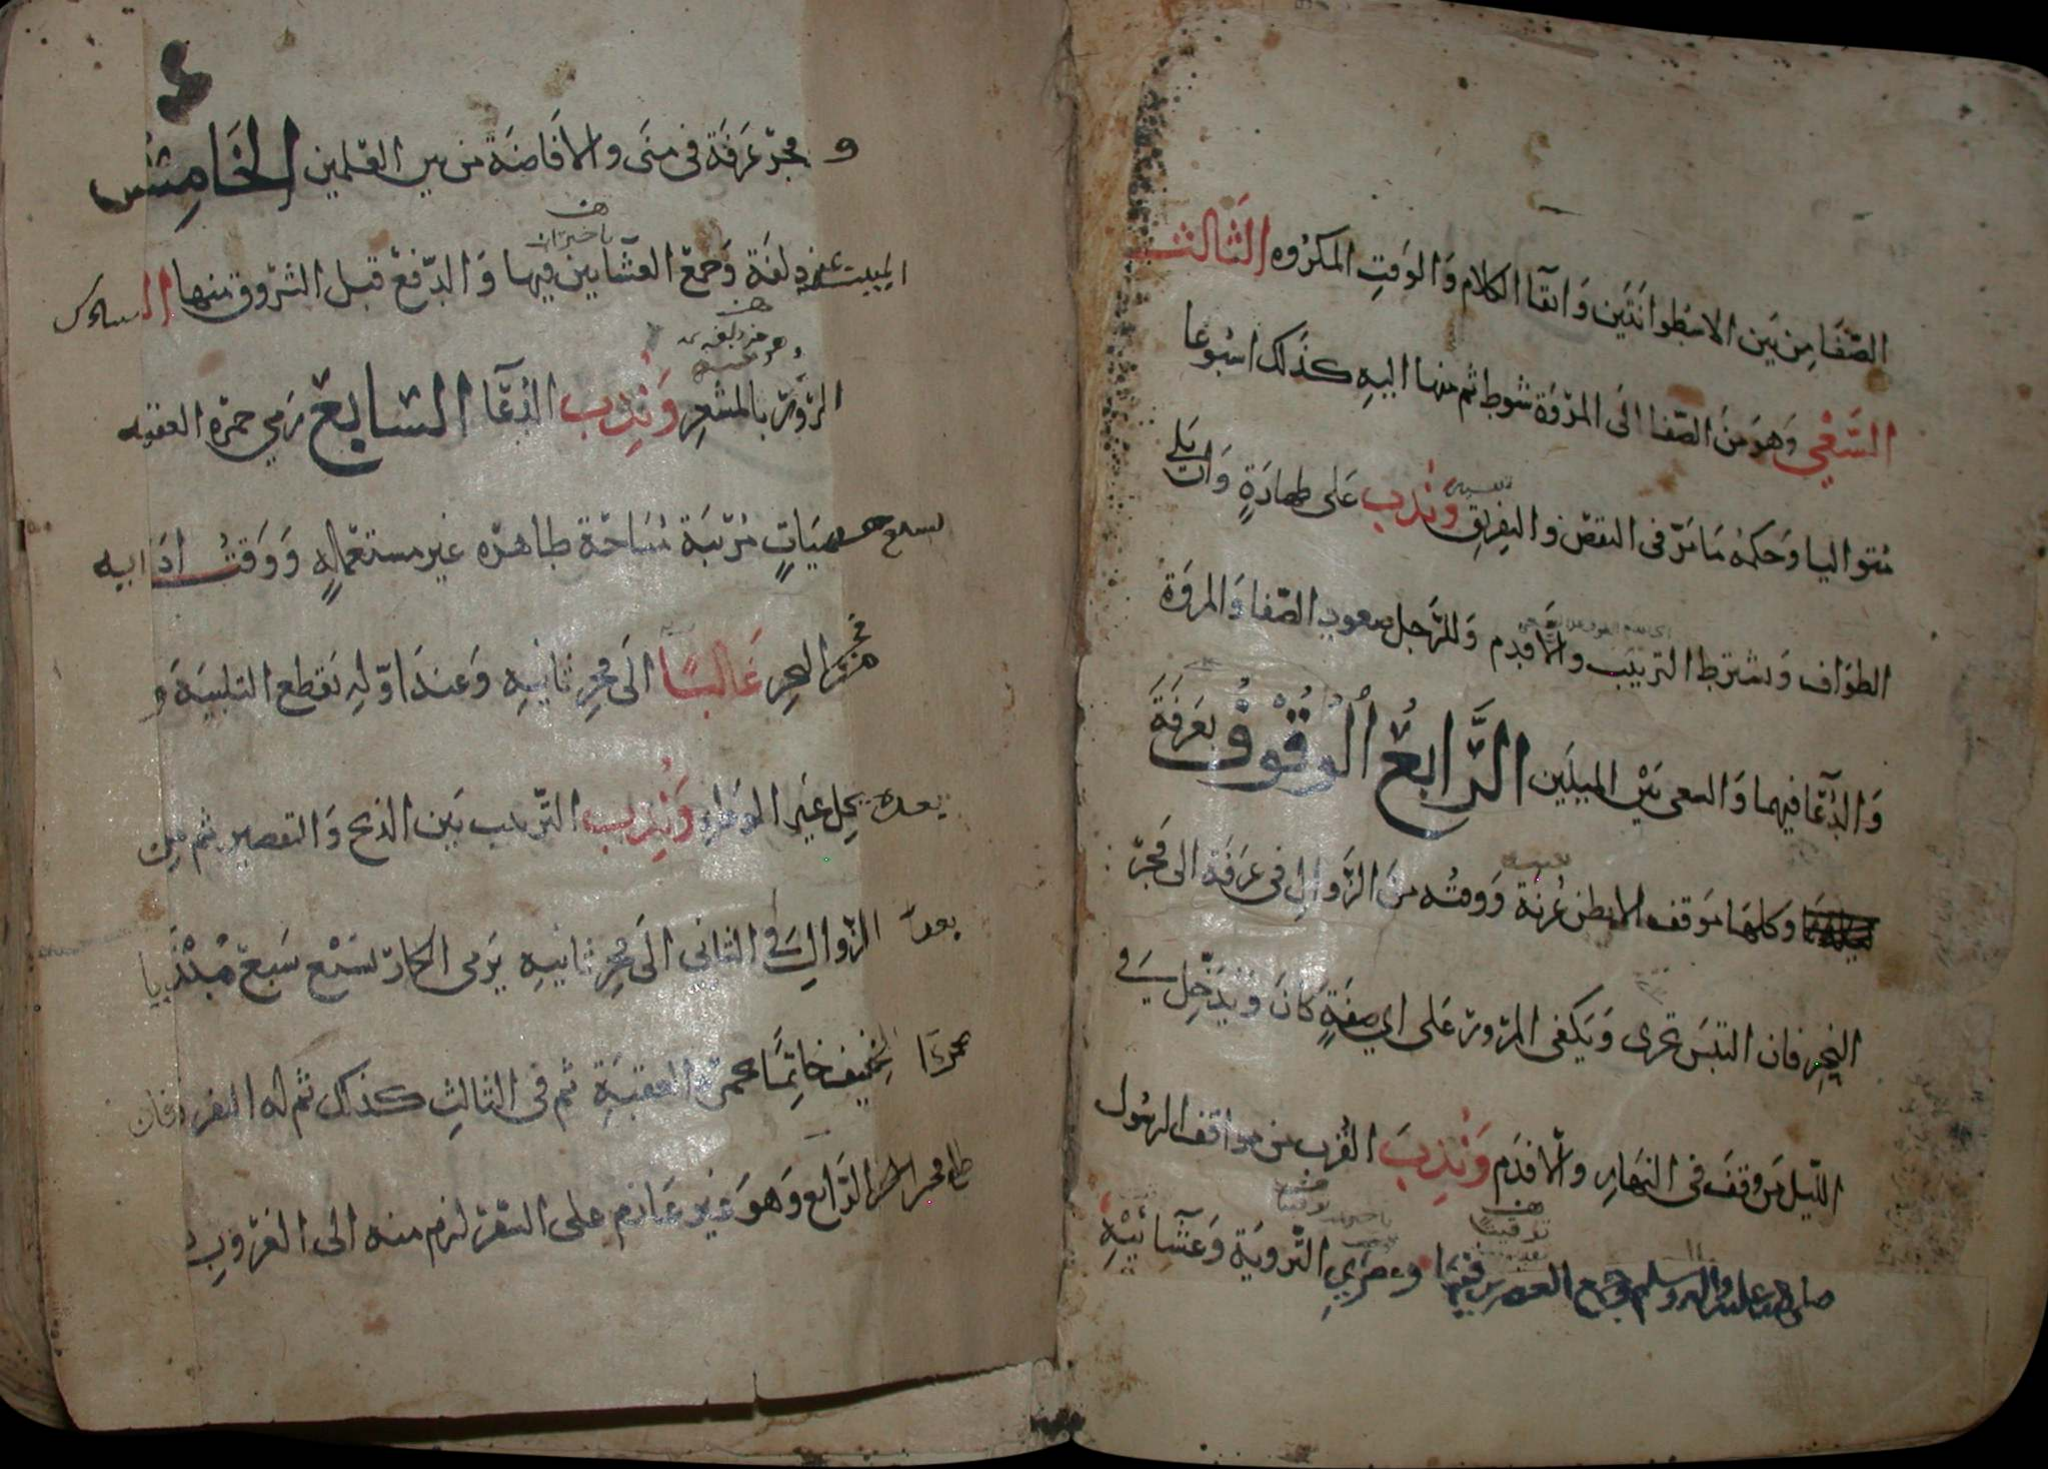 الصّفَا مِن بَين الاسْطوانَتَين وَاتقآ الكلام وَالوَقتِ المكرُوه الثَّالث
السَّعْي وَهوَ مِنَ الصّفا الَى المرْوَة شوط ثم منها اليهِ كذَلك اسْبُوعا
متواليا وَحكمهُ مَا مَرّ فى النقص وَالتفريقِ وَنُدِبَ عَلى طهارَةٍ وَان يَلى
الطوَاف وَيشترط الترتيب وَالّا فدم وَللرَّجل صعود الصّفا وَالمروَة
وَالدُّعَآ فيهما وَالسعى بَيْن الميلَين الرَّابعُ الوُقُوفُ بعَرَفَةَ
وكلهَا مَوقف الا بطن عُرنَة وَوقته منَ الزَّوَالِ فى عَرَفَة الى فَجْرِ
النحرِ فان التبَسَ تحرى وَيَكفى المرُورُ عَلى اي صِفَةٍ كانَ وَيَدْخلُ في
اللّيل مَن وَقفَ فى النهَارِ وَالّا فدَم وَنُدِبَ القُرْب من مواقف الرسُول
صلى الله عليه واله وسلم وجمع العصرين فيها وَعصْرَيِ التَّرويَة وَعشآئيْهِ
و فجر عَرَفَة فى مِنَى وَالافَاضَة من بين العَلمين الخَامِسُ
المبيت بمزدلفَة وَجمْع العشآئين فيها وَالدّفعْ قبل الشرُوق منها السادس
المرُورُ بالمشعرِ وَنُدِبَ الدُعَآ السَّابعُ رَمي جمرة العقبه
بسبع حصيَاتٍ مُرتبَة مُبَاحَة طاهرَه غير مستعْملهٍ وَوَقتُ ادَائه
من فجر النحرِ غَالبًا الَى فجْرِ ثانيهِ وَعندَ اوّلهِ يَقطع التلبيَة وَ
بعده يحِل غَير الوَطءِ وَنُدِبَ التَّرتيب بَين الذبح وَالتقصير ثم مِن
بعد الزّوالِ في الثانى الَى فجرِ ثانيهِ يَرمى الجمارَ بسَبْع سَبع مُبْتَديا
بجمرَة الخيف خاتِمًا بجمرَة العقبَةِ ثم فى الثالثِ كذلك ثم له النفر فان
طلع فجر الرّابع وَهوَ غير عَازم على السَّفرِ لزم منه الى الغرُوبِ